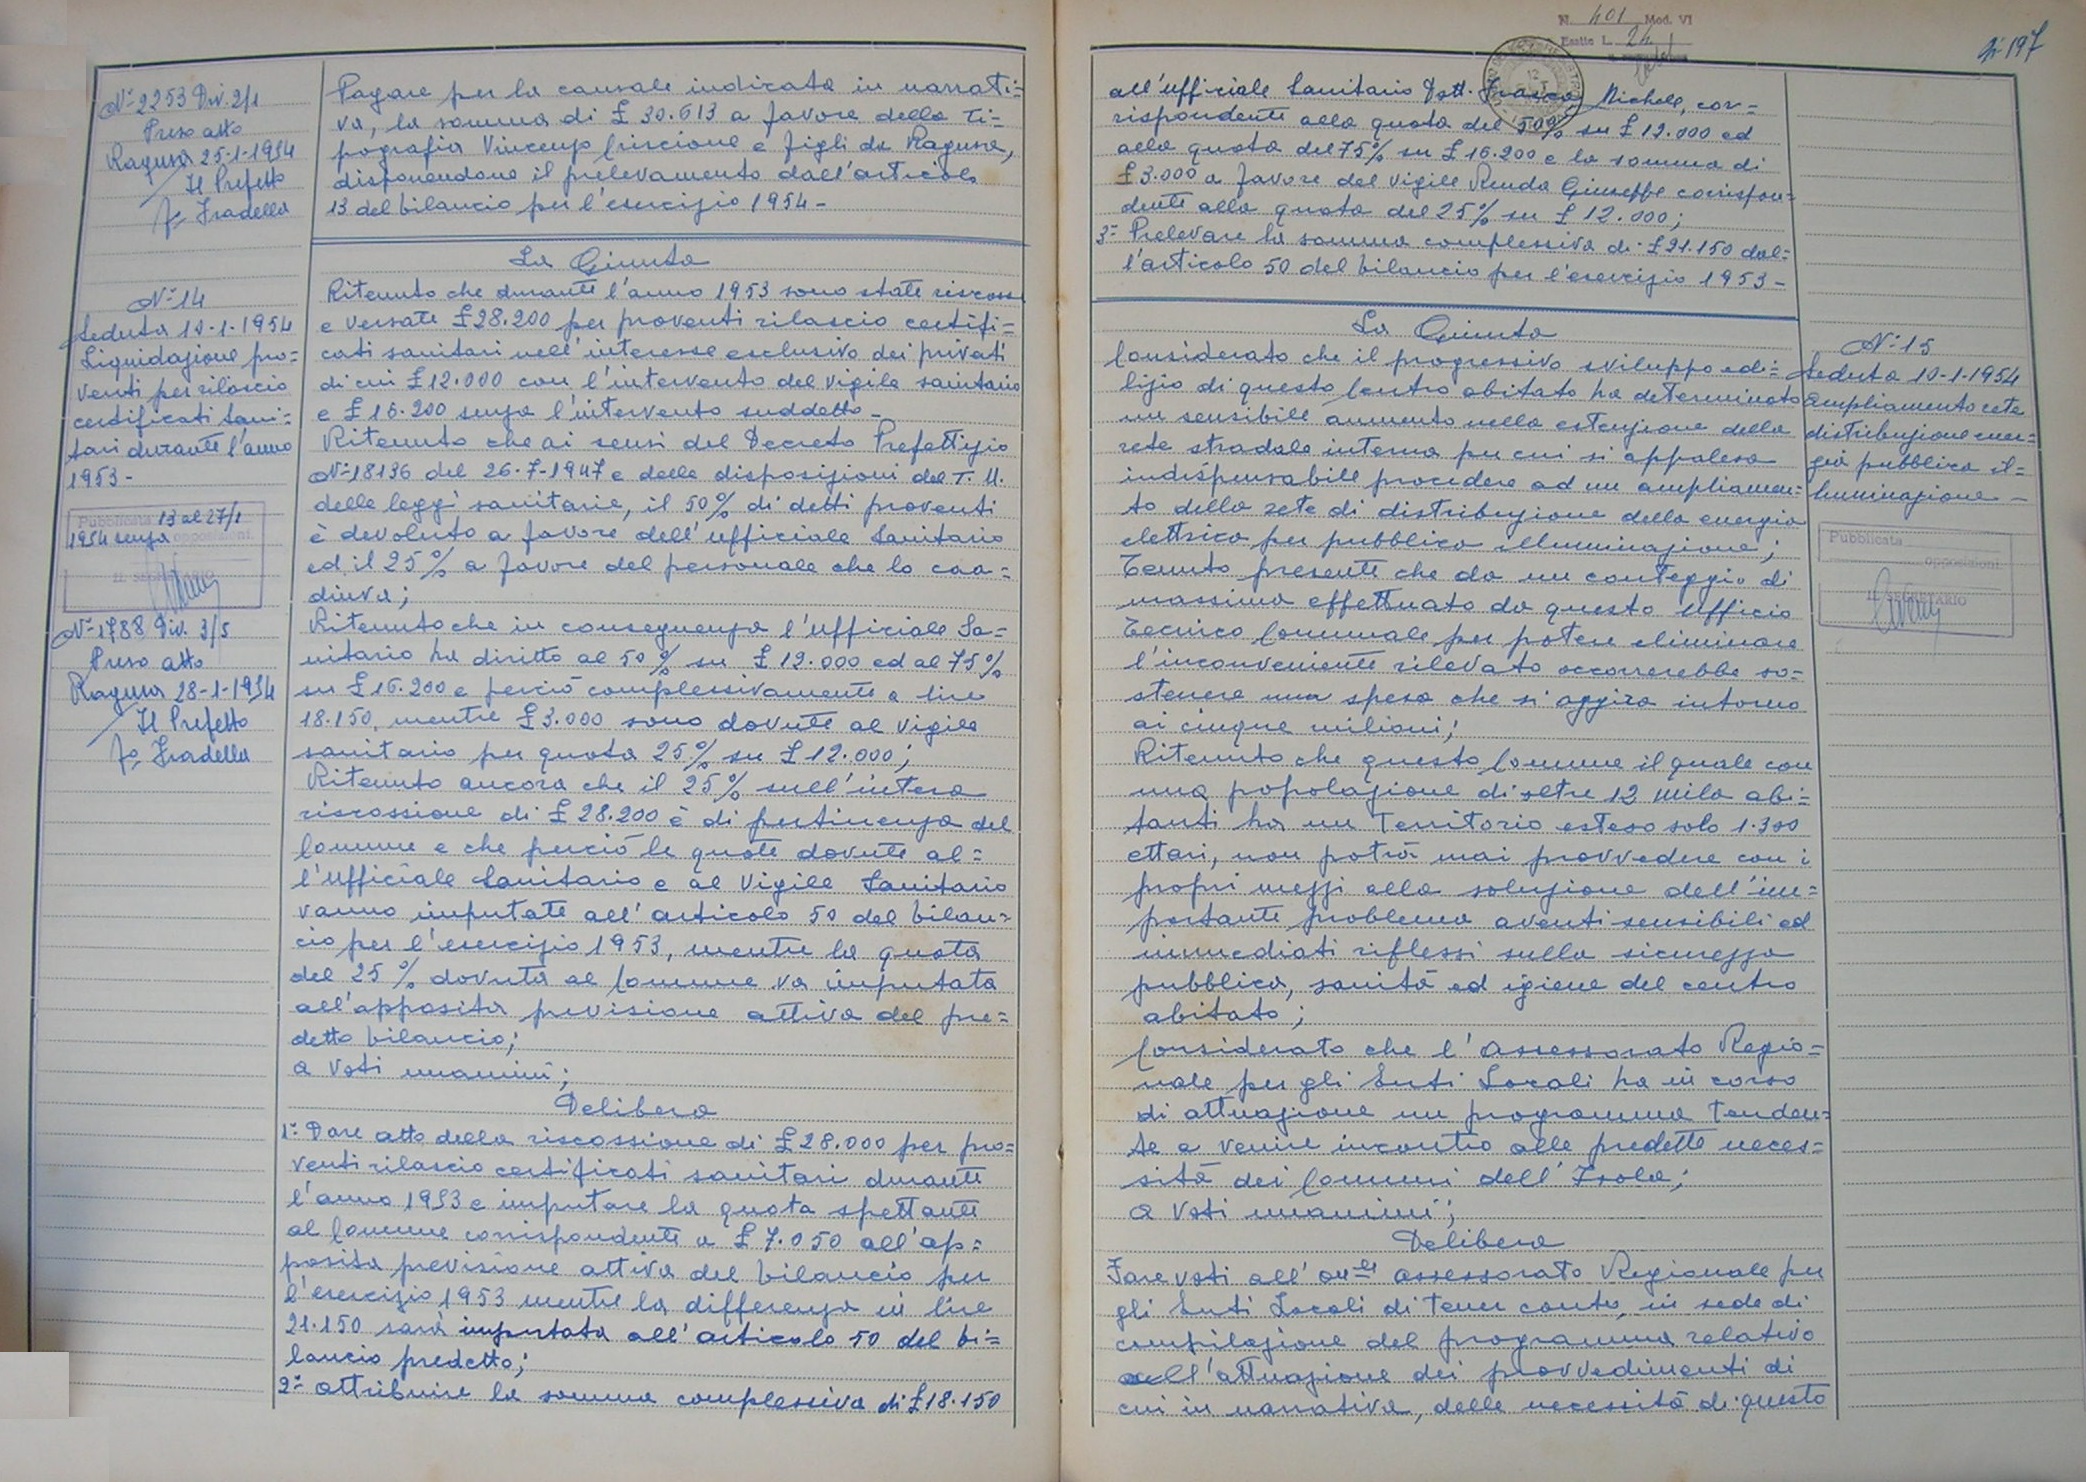 N° 2253 Div. 2/1
Preso atto
Ragusa 25-1-1954
Il Prefetto
Fo Fradella
N° 14
Seduta 10-1-1954
Liquidazione pro=
venti per rilascio
certificati Sani=
tari durante l'anno
1953-
Pubblicata 13 al 27/1
1954 senza opposizioni
IL SEGRETARIO
N° 1788 Div. 3/5
Preso atto
Ragusa 28-1-1954
Il Prefetto
Fo Fradella
Pagare per la causale indicata in narrati=
va, la somma di £ 30.613 a favore della Ti=
pografia Vincenzo Criscione e Figli da Ragusa,
disponendone il prelevamento dall'articolo
13 del bilancio per l'esercizio 1954-
La Giunta
Ritenuto che durante l'anno 1953 sono state riscosse
e versate £ 28.200 per proventi rilascio certifi=
cati sanitari nell'interesse esclusivo dei privati
di cui £ 12.000 con l'intervento del vigile sanitario
e £ 16.200 senza l'intervento suddetto-
Ritenuto che ai sensi del Decreto Prefettizio
N° 18136 del 26-7-1947 e delle disposizioni del T. U.
delle leggi sanitarie, il 50% di detti proventi
è devoluto a favore dell'ufficiale Sanitario
ed il 25% a favore del personale che lo coa=
diuva;
Ritenuto che in conseguenza l'ufficiale Sa=
nitario ha diritto al 50% su £ 12.000 ed al 75%
su £ 16.200 e perciò complessivamente a lire
18.150, mentre £ 3.000 sono dovute al vigile
sanitario per quota 25% su £ 12.000;
Ritenuto ancora che il 25% sull'intera
riscossione di £ 28.200 è di pertinenza del
Comune e che perciò le quote dovute al=
l'ufficiale Sanitario e al Vigile Sanitario
vanno imputate all'articolo 50 del bilan=
cio per l'esercizio 1953, mentre la quota
del 25% dovuta al Comune va imputata
all'apposita previsione attiva del pre=
detto bilancio;
a voti unanimi;
Delibera
1°- Dare atto della riscossione di £ 28.000 per pro=
venti rilascio certificati sanitari durante
l'anno 1953 e imputare la quota spettante
al Comune corrispondente a £ 7.050 all'ap=
posita previsione attiva del bilancio per
l'esercizio 1953 mentre la differenza in lire
21.150 sarà imputata all'articolo 50 del bi=
lancio predetto;
2°- attribuire la somma complessiva di £ 18.150
N. 401 Mod. VI
Esatte L. 24
197
all'ufficiale Sanitario Dott. Frasca Michele, cor=
rispondente alla quota del 50% su £ 12.000 ed
alla quota del 75% su £ 16.200 e la somma di
£ 3.000 a favore del vigile Renda Giuseppe corrispon=
dente alla quota del 25% su £ 12.000;
3°- Prelevare la somma complessiva di £ 21.150 dal=
l'articolo 50 del bilancio per l'esercizio 1953-
La Giunta
Considerato che il progressivo sviluppo edi=
lizio di questo Centro abitato ha determinato
un sensibile aumento nella estenzione della
rete stradale interna per cui si appalesa
indispensabile procedere ad un ampliamen=
to della rete di distribuzione della energia
elettrica per pubblica illuminazione;
Tenuto presente che da un conteggio di
massima effettuato da questo Ufficio
Tecnico Comunale per potere eliminare
l'inconveniente rilevato occorrerebbe so=
stenere una spesa che si aggira intorno
ai cinque milioni;
Ritenuto che questo Comune il quale con
una popolazione di oltre 12 mila abi=
tanti ha un Territorio esteso solo 1.300
ettari, non potrà mai provvedere con i
propri mezzi alla soluzione dell'im=
portante problema aventi sensibili ed
immediati riflessi sulla sicurezza
pubblica, sanità ed igiene del centro
abitato;
Considerato che l'Assessorato Regio=
nale per gli Enti Locali ha in corso
di attuazione un programma Tenden=
te a venire incontro alle predette neces=
sità dei Comuni dell'Isola;
a voti unanimi;
Delibera
Fare voti all'On.le Assessorato Regionale per
gli Enti Locali di tener conto, in sede di
compilazione del programma relativo
all'attuazione dei provvedimenti di
cui in narrativa, delle necessità di questo
N° 15
Seduta 10-1-1954
Ampliamento rete
distribuzione ener=
gia pubblica il=
luminazione-
Pubblicata
opposizioni
IL SEGRETARIO